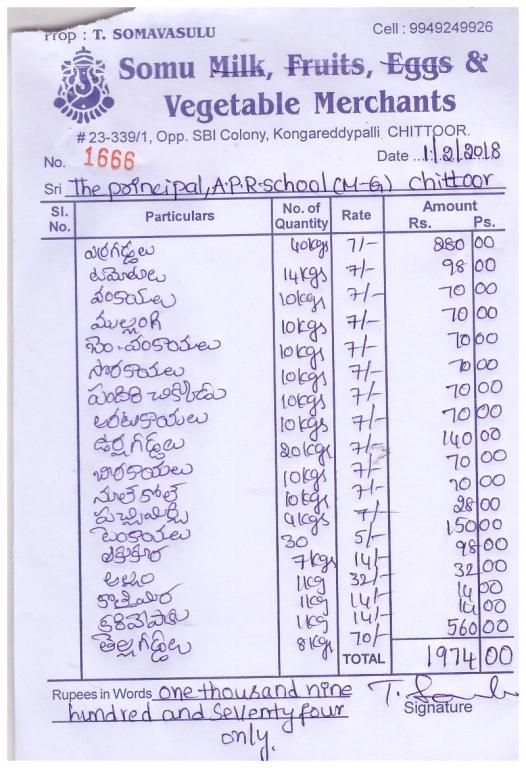 Prop : T. SOMAVASULU
Cell : 9949249926
Somu Milk, Fruits, Eggs &
Vegetable Merchants
# 23-339/1, Opp. SBI Colony, Kongareddypalli CHITTOOR.
No. 1666 Date ..1/2/2018
Sri The principal, A.P.R.school (M-G) chittoor
Sl. No. Particulars No. of Quantity Rate Amount Rs. Ps.
ఎర్రగడ్డలు 40kgs 7/- 280 00
టమోటాలు 14kgs 7/- 98 00
వంకాయలు 10kgs 7/- 70 00
ముల్లంగి 10kgs 7/- 70 00
బెం.వంకాయలు 10kgs 7/- 70 00
సొరకాయలు 10kgs 7/- 70 00
పందిరి చిక్కుడు 10kgs 7/- 70 00
అరటికాయలు 10kgs 7/- 70 00
ఉర్లగడ్డలు 20kgs 7/- 140 00
బీరకాయలు 10kgs 7/- 70 00
నూల్ కోల్ 10kgs 7/- 70 00
పచ్చిమిర్చి 4kgs 7/- 28 00
టెంకాయలు 30 5/- 150 00
7kgs 14/- 98 00
అల్లం 1kg 32/- 32 00
కొత్తిమీర 1kg 14/- 14 00
కరివేపాకు 1kg 14/- 14 00
తెల్లగడ్డలు 8kgs 70/- 560 00
TOTAL 1974 00
Rupees in Words one thousand nine
hundred and seventy four
only.
Signature